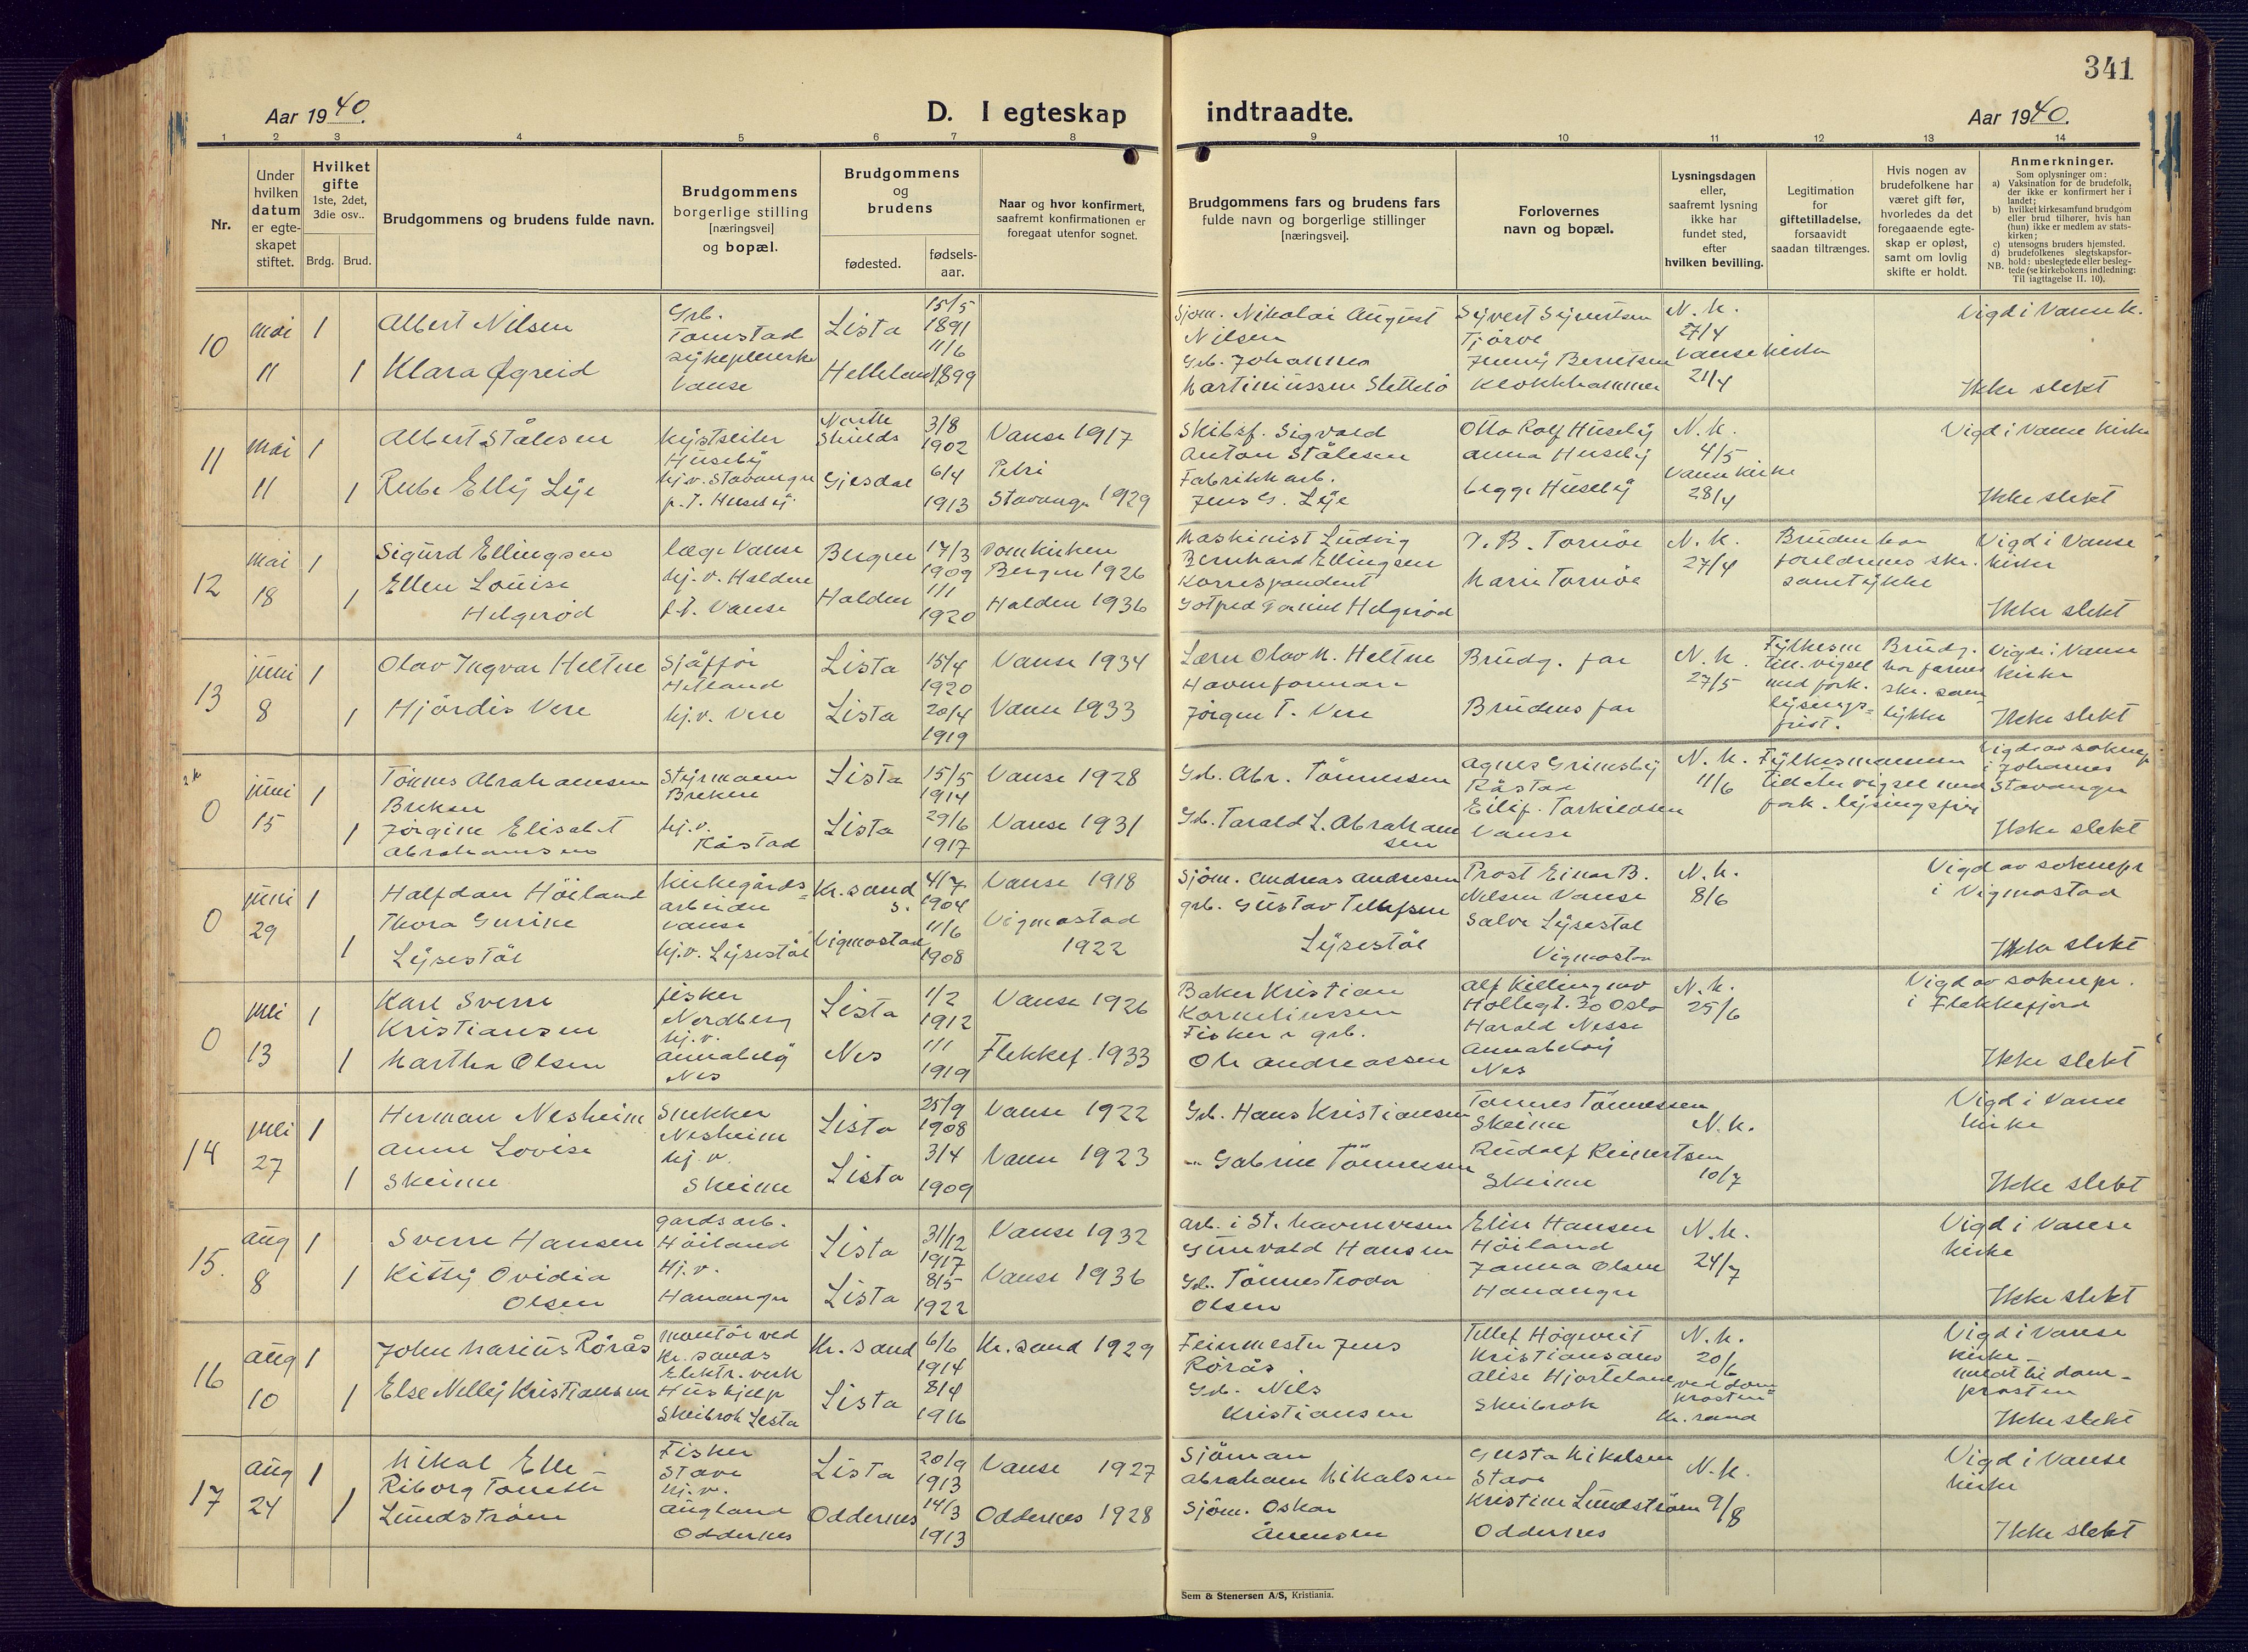 341
Aar 1940.
D. I egteskap indtraadte.
Aar 1940.
1 2 3 4 5 6 7 8 9 10 11 12 13 14
Nr.
Under hvilken datum er egte-skapet stiftet.
Hvilket gifte 1ste, 2det, 3die osv..
Brdg. Brud.
Brudgommens og brudens fulde navn.
Brudgommens borgerlige stilling [næringsvei] og bopæl.
Brudgommens og brudens
fødested.
fødsels-aar.
Naar og hvor konfirmert, saafremt konfirmationen er foregaat utenfor sognet.
Brudgommens fars og brudens fars fulde navn og borgerlige stillinger [næringsvei].
Forlovernes navn og bopæl.
Lysningsdagen eller, saafremt lysning ikke har fundet sted, efter hvilken bevilling.
Legitimation for giftetilladelse, forsaavidt saadan tiltrænges.
Hvis nogen av brudefolkene har været gift før, hvorledes da det foregaaende egte-skap er opløst, samt om lovlig skifte er holdt.
Anmerkninger.
Som oplysninger om:
a) Vaksination for de brudefolk, der ikke er konfirmert her i landet;
b) hvilket kirkesamfund brudgom eller brud tilhører, hvis han (hun) ikke er medlem av stats-kirken;
c) utensogns bruders hjemsted.
d) brudefolkenes slegtskapsfor-hold: ubeslegtede eller besleg-tede (se kirkebokens indledning:
NB. Til iagttagelse II. 10).
10 mai 11 1 1
Albert Nilsen
Klara Øgreid
Grb.
Tomstad
Vanse
Lista 15/5 1891
Helleland 11/6 1899
Sjøm. Nikolai August
Nilsen
Grb. Johannes
Martiniussen Slettebö
Sÿvert Sÿvertsen
Tjörve
Jennÿ Berntsen
Klokkhammer
N. k.
27/4
Vanse kirke
21/4
Vigd i Vanse k.
Ikke slekt
11 mai 11 1 1
Albert Stålesen
Elly Lÿe
Husebÿ
hj. v. Stavanger
p. t. Husebÿ
North Shields 3/8 1902
Gjesdal 6/4 1913
Vanse 1917
Petri
Stavanger 1929
Skibsf. Sigvald
Anton Stålesen
Fabrikkarb.
Jens G. Lÿe
Otto Rolf Husebÿ
Anna Husebÿ
begge Husebÿ
N. k.
4/5
Vanse kirke
28/4
Vigd i Vanse kirke
Ikke slekt
12 mai 18 1 1
Sigurd Ellingsen
Ellen Louise
Helgeröd
læge Vanse
hj. v. Halden
p. t. Vanse
Bergen 17/3 1909
Halden 1/1 1920
Domkirken
Bergen 1926
Halden 1936
Maskinist Ludvig
Bernhard Ellingsen
Korrespondent
Helgeröd
Tornöe
Marie Tornöe
N. k.
27/4
Bruden har
foreldrenes skr.
samtÿkke
Vigd i Vanse
kirke
Ikke slekt
13 juni 8 1 1
Olav Ingvar Heltne
Hjördis Vere
Sjåfför
Hetland
hj. v. Vere
Lista 15/4 1920
Lista 20/4 1919
Vanse 1934
Vanse 1933
Lærer Olav M. Heltne
Havneformann
Jörgen T. Vere
Brudg. far
Brudens far
N. k.
27/5
Fÿlkesm
till. vigsel
med fork.
lÿsings=
frist.
Brudg.
har farens
skr. sam
tÿkke
Vigd i Vanse
kirke
Ikke slekt
0 juni 15 1 1
Tönnes Abrahamsen
Brekne
Jörgine Elisabet
Abrahamsen
Stÿrmann
Brekne
hj. v.
Råstad
Lista 15/5 1914
Lista 29/6 1917
Vanse 1928
Vanse 1931
Grb. Abr. Tönnessen
Grb. Tarald L. Abrahamsen
Agnes Grimsbÿ
Råstad
Eilif Tarkildsen
Vanse
N. k.
11/6
Fÿlkesmannen
tillater vigsel med
fork. lÿsingsfrist
Vigd av soknepr
i Johannes
Stavanger
Ikke slekt
0 juni 29 1 1
Halfdan Höiland
Thora Gurine
Lÿsestöl
Kirkegårds=
arbeider
Vanse
hj. v. Lÿsestöl
Kr.sand s. 4/7 1904
Vigmostad 11/6 1908
Vanse 1918
Vigmostad
1922
Sjöm. Andreas Andresen
grb. Gustav Tellefsen
Lÿsestöl
Prost Einar B.
Nilsen Vanse
Salve Lÿsestöl
Vigmostad
N. k.
8/6
Vigd av soknepr
i Vigmostad
Ikke slekt
0 juli 13 1 1
Karl Sverre
Kristiansen
Martha Olsen
fisker
Nordberg
hj. v.
Annabelÿ
Nes
Lista 1/2 1912
Nes 1/1 1919
Vanse 1926
Flekkef. 1933
Baker Kristian
Korneliussen
Fisker & grb.
Ole Andreassen
Alf Killingmo
30 Oslo
Harald Nesse
Annabelöÿ
Nes
N. k.
25/6
Vigd av soknepr.
i Flekkefjord
Ikke slekt
14 juli 27 1 1
Herman Nesheim
Anne Lovise
Skeime
Snekker
Nesheim
hj. v.
Skeime
Lista 25/9 1908
Lista 3/4 1909
Vanse 1922
Vanse 1923
Grb. Hans Kristiansen
" Gabriel Tönnessen
Tönnes Tönnessen
Skeime
Rudolf Reinertsen
Skeime
N. k.
10/7
Vigd i Vanse
kirke
Ikke slekt
15. aug 8 1 1
Sverre Hansen
Kittÿ Ovidia
Olsen
gardsarb.
Höiland
Hj. v.
Hananger
Lista 31/12 1917
Lista 8/5 1922
Vanse 1932
Vanse 1936
Arb. i St. havnevesen
Gunvald Hansen
Grb. Tönnes Teodor
Olsen
Elise Hansen
Höiland
Janna Olsen
Hananger
N. k.
24/7
Vigd i Vanse
kirke
Ikke slekt
16 aug 10 1 1
John Marius Rörås
Else Nellÿ Kristiansen
montör ved
Kr. sands
Elektr. verk
Hushjelp
Skeibrok Lista
Kr. sand 6/6 1914
Lista 8/4 1916
Kr. sand 1929
Feiermester Jens
Rörås
Grb. Nils
Kristiansen
Tellef Högeveit
Kristiansand
Alise Hjorteland
Skeibrok
N. k.
20/6
ved dom=
prosten
Kr. sand
Vigd i Vanse
kirke
meldt til dom-
prosten
Ikke slekt
17 aug 24 1 1
Mikal Elle
Riborg Tonette
Lundström
Fisker
Stave
hj. v.
Augland
Oddernes
Lista 20/9 1913
Oddernes 14/3 1913
Vanse 1927
Oddernes 1928
Sjöman
Abraham Mikalsen
Sjöm. Oskar
Ånensen
Gusta Mikalsen
Stave
Kristine Lundström
Oddernes
N. k.
9/8
Vigd i Vanse
kirke
Ikke slekt
Sem & Stenersen A/S, Kristiania.